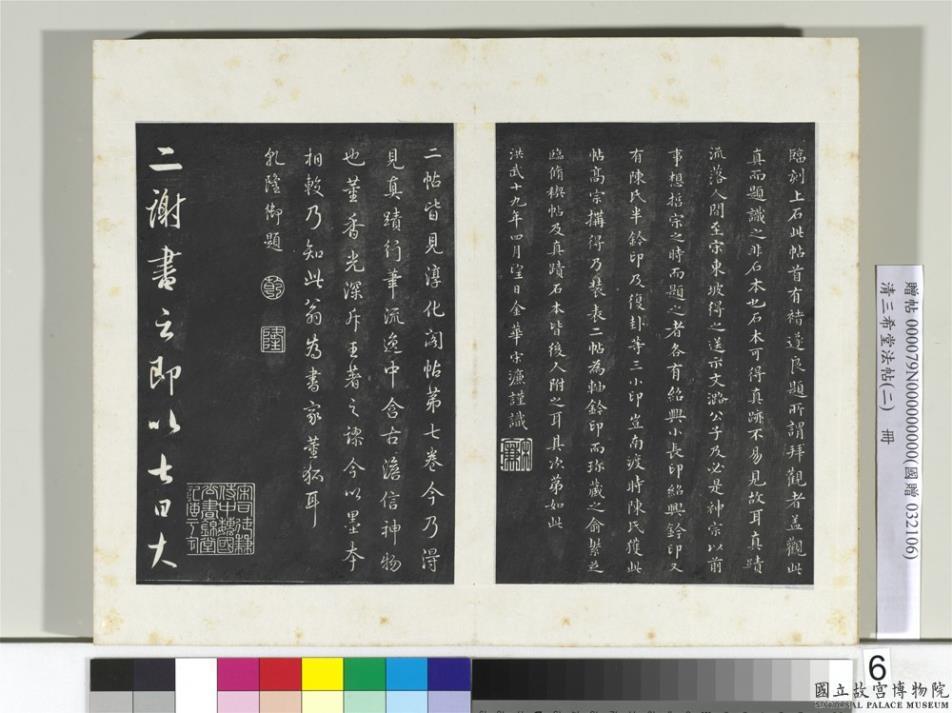 臨刻上石此帖首有褚遂良題所謂拜觀者蓋觀此
真而題識之非石本也石本可得真跡不易見故耳真蹟
流落人間至宋東坡得之送示文潞公子及必是神宗以前
事想招宗之時而題之者各有紹興小長印紹興鈐印又
有陳氏半鈴印及復卦等三小印豈南渡時陳氏獲此
帖高宗搆得乃裝表二帖為軸鈐印而珍藏之俞紫芝
臨脩禊帖及真蹟石本皆後人附之耳具次第如此
洪武十九年四月望日金華宋濂謹識
二帖皆見淳化閣帖第七卷今乃得
見真蹟行筆流逸中含古澹信神物
也董香光深斥王著之謬今以墨本
相較乃知此翁為書家董狐耳
乾隆御題
乾
隆
二謝書云即以七日大
贈帖 000079N000000000(國贈 032106)
清三希堂法帖(二) 冊
6
國立故宮博物院
NATIONAL PALACE MUSEUM